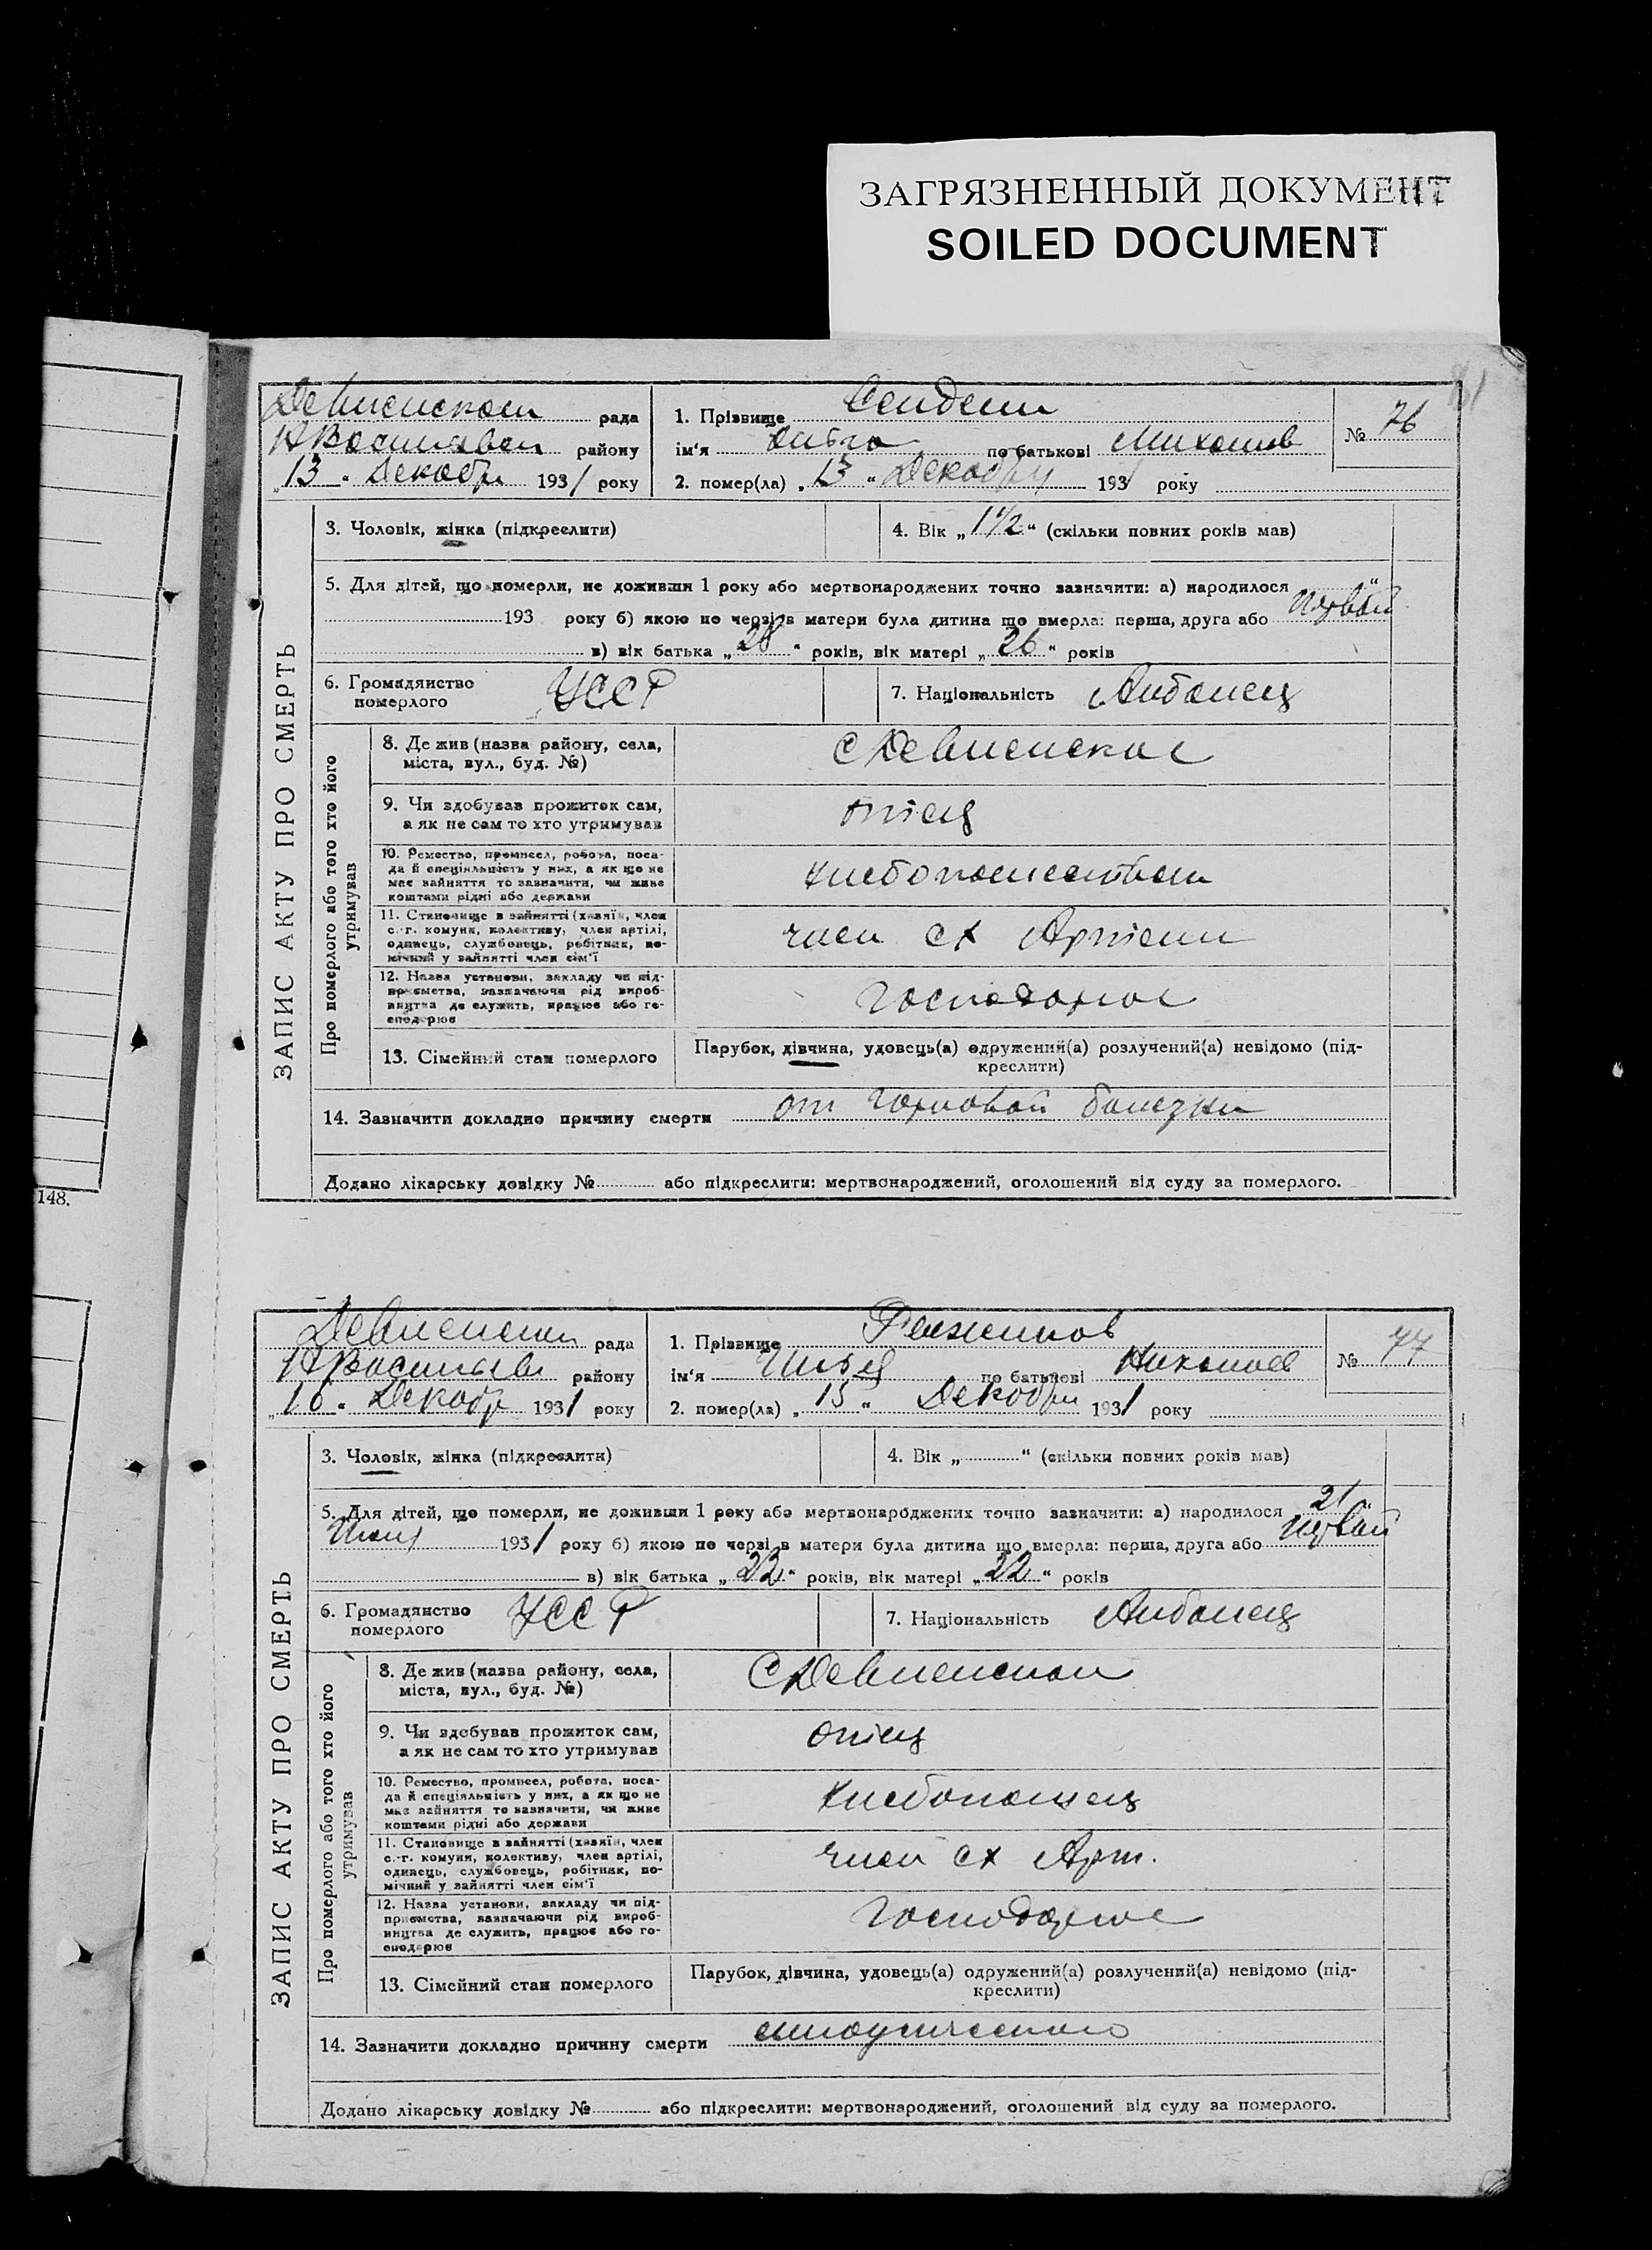 ЗАГРЯЗНЕННЫЙ ДОКУМЕНТ
SOILED DOCUMENT
148.
81
рада
району
„13“ Декабр 1931 року
1. Прізвище
ім‘я по батькові
2. помер(ла) „13“ Декабря 1931 року
№ 76
ЗАПИС АКТУ ПРО СМЕРТЬ
3. Чоловік, жінка (підкреслити)
4. Вік „1 1/2“ (скільки повних років мав)
5. Для дітей, що померли, не доживши 1 року або мертвонароджених точно зазначити: а) народилося „
193 року б) якою по черзі в матери була дитина що вмерла: перша, друга або первой
в) вік батька „28“ років, вік матері „26“ років
6. Громадянство
померлого
УССР
7. Національність Албанец
Про померлого або того хто його
утримував
8. Де жив (назва району, села,
міста, вул., буд. №)
9. Чи здобував прожиток сам,
а як не сам то хто утримував
отец
10. Ремество, промисел, робота, поса-
да й специяльність у них, а як що не
має зайняття то зазначити, чи живе
коштами рідні або держави
11. Становище в зайнятті (хазяїн, член
с.-г. комуни, колективу, член артілі,
одинець, службовець, робітник, по-
мічний у зайнятті член сім‘ї
член сх Артели
12. Назва установи, закладу чи під-
приємства, зазначаючи рід вироб-
ництва де служить, працює або го-
сподарює
13. Сімейний стан померлого
Парубок, дівчина, удовець(а) одружений(а) розлучений(а) невідомо (під-
креслити)
14. Зазначити докладно причину смерти от горловой болезни
Додано лікарську довідку № або підкреслити: мертвонароджений, оголошений від суду за померлого.
рада
району
„16“ Декабр 1931 року
1. Прізвище
ім‘я Илья по батькові Николаев
2. помер(ла) „15“ Декабря 1931 року
№ 77
ЗАПИС АКТУ ПРО СМЕРТЬ
3. Чоловік, жінка (підкреслити)
4. Вік „ “ (скільки повних років мав)
5. Для дітей, що померли, не доживши 1 року або мертвонароджених точно зазначити: а) народилося „21“
1931 року б) якою по черзі в матери була дитина що вмерла: перша, друга або первой
в) вік батька „23“ років, вік матері „22“ років
6. Громадянство
померлого
УССР
7. Національність Албанец
Про померлого або того хто його
утримував
8. Де жив (назва району, села,
міста, вул., буд. №)
9. Чи здобував прожиток сам,
а як не сам то хто утримував
отец
10. Ремество, промисел, робота, поса-
да й специяльність у них, а як що не
має зайняття то зазначити, чи живе
коштами рідні або держави
хлебопашец
11. Становище в зайнятті (хазяїн, член
с.-г. комуни, колективу, член артілі,
одинець, службовець, робітник, по-
мічний у зайнятті член сім‘ї
член сх Арт.
12. Назва установи, закладу чи під-
приємства, зазначаючи рід вироб-
ництва де служить, працює або го-
сподарює
13. Сімейний стан померлого
Парубок, дівчина, удовець(а) одружений(а) розлучений(а) невідомо (під-
креслити)
14. Зазначити докладно причину смерти
Додано лікарську довідку № або підкреслити: мертвонароджений, оголошений від суду за померлого.